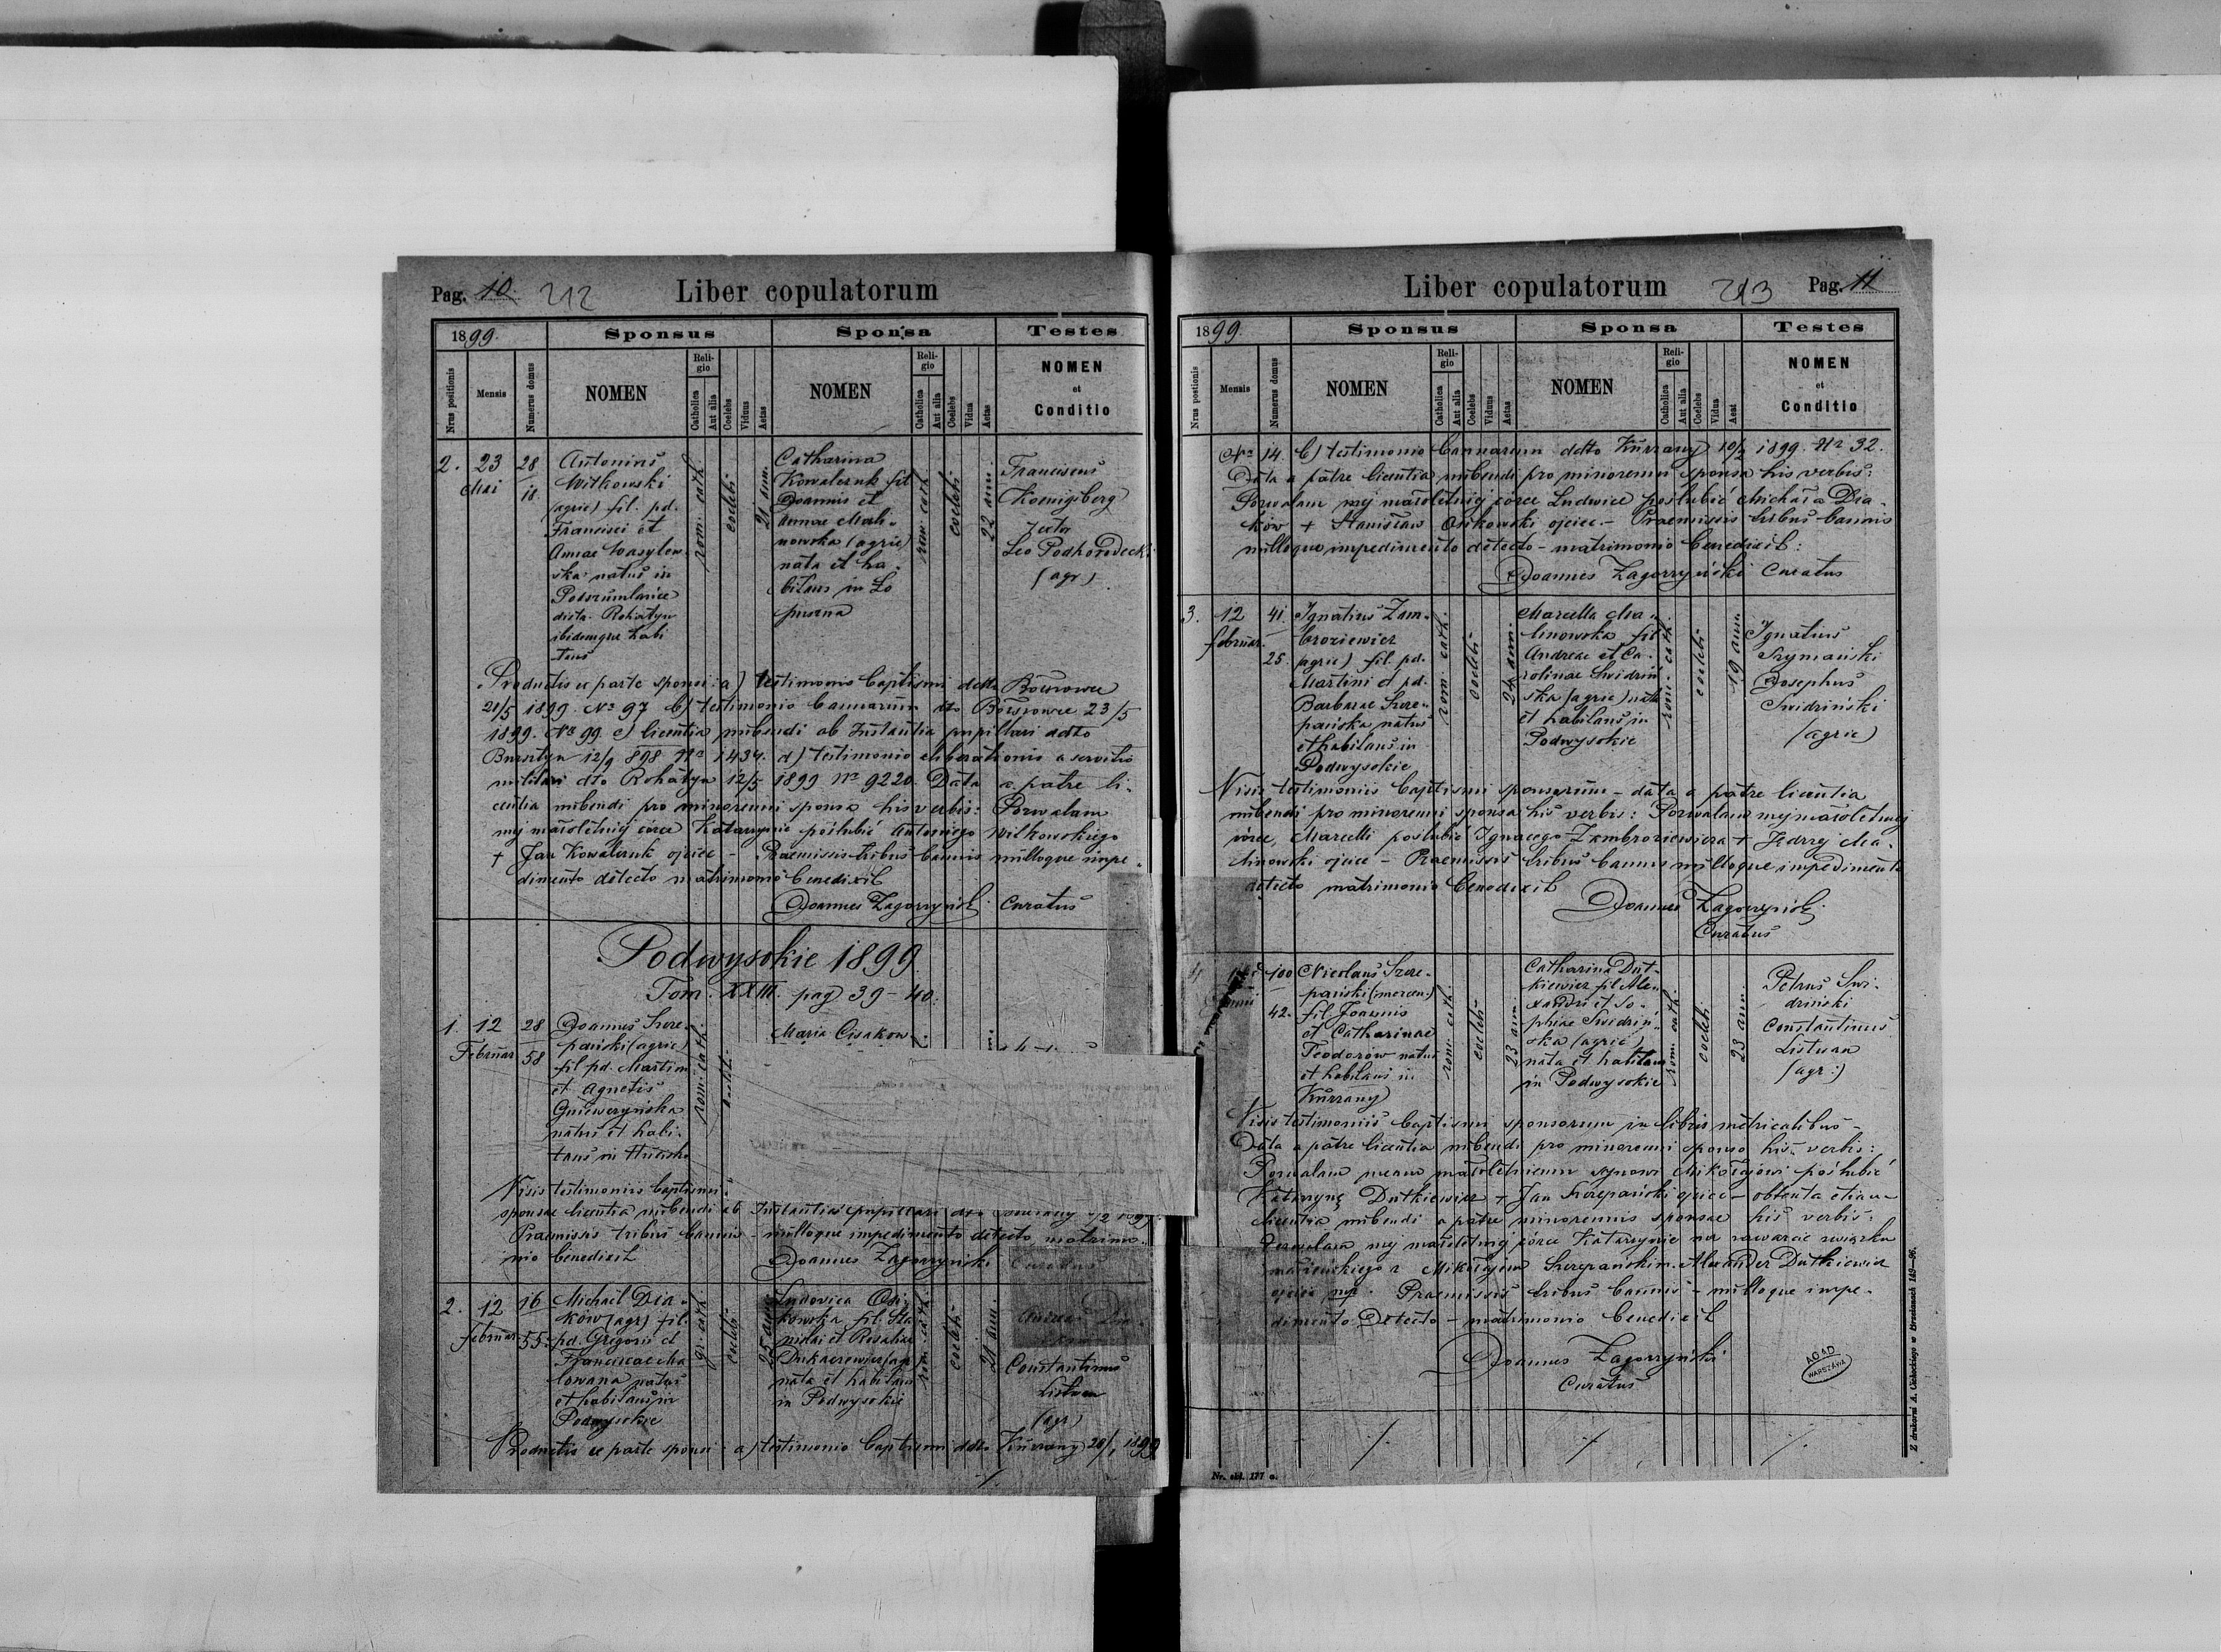 Pag. 10. 212 Liber copulatorum
1899. Sponsus Sponsa Testes
Nrus positionis Mensis Numerus domus NOMEN Religio Catholica Aut alia Coelebs Viduus Aetas NOMEN Religio Catholica Aut alia Coelebs Vidua Aetas NOMEN et Conditio
2. 23 Mai 28/18
Antonius
Witkowski
(agric) fil. pd.
Francisci et
Annae Wasylew
ska natus in
dicta Rohatyn
ibidemque habi
tans
rom. cath.
coelebs
21 ann.
Catharina
Kowalczuk fil
Joannis et
Annae Mali-
nowska (agric)
nata et ha-
bitans in Lo
puszna
rom. cath.
coelebs
22 ann.
Franciscus
Koenigsberg
Leo Podhorodecki
(agr)
Productis ex parte sponsi: a) testimonio baptismi ddto Bouszowce
21/5 1899. No 97 b) testimonio bannorum dto Bouszowce 23/5
1899. No 99. c) licentia nubendi ab Instantia pupillari ddto
Bursztyn 12/9 898 No 1434. d) testimonio liberationis a servitio
militari dto Rohatyn 12/5 1899 No 9220. Data a patre li-
centia nubendi pro minorenni sponsa his verbis: Pozwalam
mej małoletniej córce Katarzynie poślubić Antoniego Witkowskiego
+ Jan Kowalczuk ojciec - Praemissis tribus bannis nulloque impe-
dimento detecto matrimonio benedixit
Joannes Zagorzyński Curatus
Podwysokie 1899.
Tom. XXIII. pag 39-40.
1. 12 Februar 28/58
Joannes Szcze-
pański (agric)
fil pd. Martini
et Agnetis
Gniewczyńska
natus et habi-
tans in
rom. cath.
Maria Cisakow
Visis testimoniis baptismi
sponsae licentia nubendi ab Instantia pupillari
Praemissis tribus bannis - nulloque impedimento detecto matrimo-
nio benedixit Joannes Zagorzyński Curatus
2. 12 Februar 16/55
Michael Dia-
ków (agr) fil.
pd. Gregorii et
Franciscae Cha
lowana natus
et habitans in
Podwysokie
gr. cath.
coelebs
25 ann.
Ludovica Osi-
kowska fil. Sta
nislai et Rosaliae
nata et habitans
in Podwysokie
rom. cath.
coelebs
21 ann.
Constantinus
Listwan
(agr)
Productis ex parte sponsi: a) testimonio baptismi ddto Kurzany 28/1 1899
./.
Liber copulatorum 213 Pag. 11
1899. Sponsus Sponsa Testes
Nrus postionis Mensis Numerus domus NOMEN Religio Catholica Aut alia Coelebs Viduus Aetas NOMEN Religio Catholica Aut alia Coelebs Vidua Aest NOMEN et Conditio
No 14. b) testimonio bannorum ddto Kurzany 10/2 1899. No 32.
Data a patre licentia nubendi pro minorenni sponsa his verbis:
Pozwalam mej małoletniej córce Ludwice poślubić Michała Dia-
ków + Stanisław Osikowski ojciec - Praemissis tribus bannis
nulloque impedimento detecto - matrimonio benedixit:
Joannes Zagorzyński Curatus
3. 12 Februar. 41/25.
Ignatius Zam-
broziewicz
(agric) fil. pd.
Martini et pd.
Barbarae Szcze-
pańska natus
et habitans in
Podwysokie
rom cath.
coelebs
24 ann.
Marcella Ma-
linowska fil
Andreae et Ca-
rolinae Swidriń
ska (agric) nata
et habitans in
Podwysokie
rom. cath.
coelebs
19 ann.
Ignatius
Szymański
Josephus
Swidriński
(agric)
Visis testimoniis baptismi sponsorum - data a patre licentia
nubendi pro minorenni sponsa his verbis: Pozwalam mej małoletniej
córce, Marcelli poślubić Ignacego Zambroziewicza + Jędrzej Ma-
linowski ojciec - Praemissis tribus bannis nulloque impedimento
detecto matrimonio benedixit
Joannes Zagorzyński
Curatus
4 100/42.
Nicolaus Szcze-
pański (mercen.)
fil. Joannis
et Catharinae
Teodorów natus
et habitans in
Kurzany
rom. cath.
coelebs
23 ann.
Catharina Dut-
kiewicz fil Ale-
xandri et So-
phiae Swidriń-
ska (agric)
nata et habitans
in Podwysokie
rom. cath.
coelebs
23 ann.
Petrus Swi-
driński
Constantinus
Listwan
(agr:)
Visis testimoniis baptismi sponsorum in libris metricalibus -
Data a patre licentia nubendi pro minorenni sponso his verbis:
Pozwalam memu małoletniemu synowi Mikołajowi poślubić
Katarzynę Dutkiewicz + Jan Szczepański ojciec - obtenta etiam
licentia nubendi a patre minorennis sponsae his verbis:
Pozwalam mej małoletniej córce Katarzynie na zawarcie związku
małżeńskiego z Mikołajem Szczepańskim. Alexander Dutkiewicz
ojciec mp. Praemissis tribus bannis - nulloque impe-
dimento detecto - matrimonio benedixit
Joannes Zagorzyński
Curatus
AGAD WARSZAWA
./. ./. ./.
Nr. skł. 177 a.
Z drukarni A. Cichockiego w Brzeżanach 149—96.